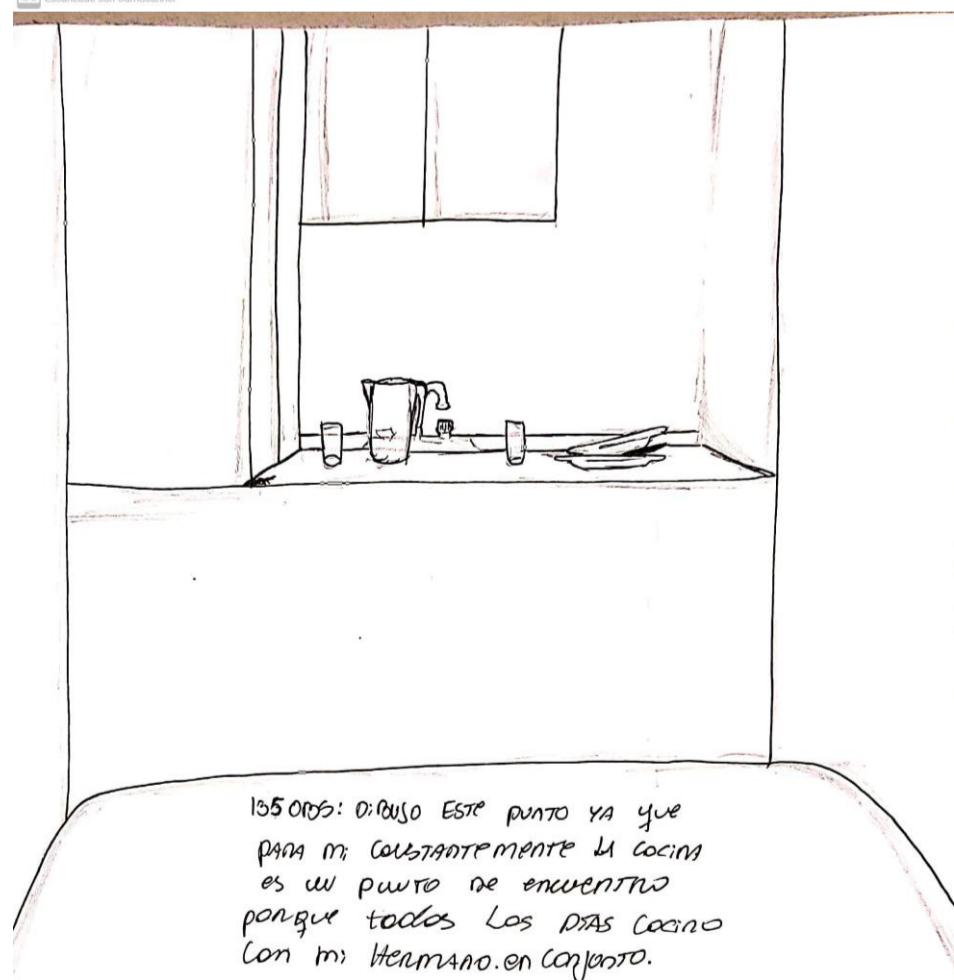 135 OBS: DIBUJO ESTE PUNTO YA QUE
PARA MI CONSTANTEMENTE LA COCINA
ES UN PUNTO DE ENCUENTRO
PORQUE todos LOS DIAS COCINO
CON MI HERMANO. EN CONJUNTO.